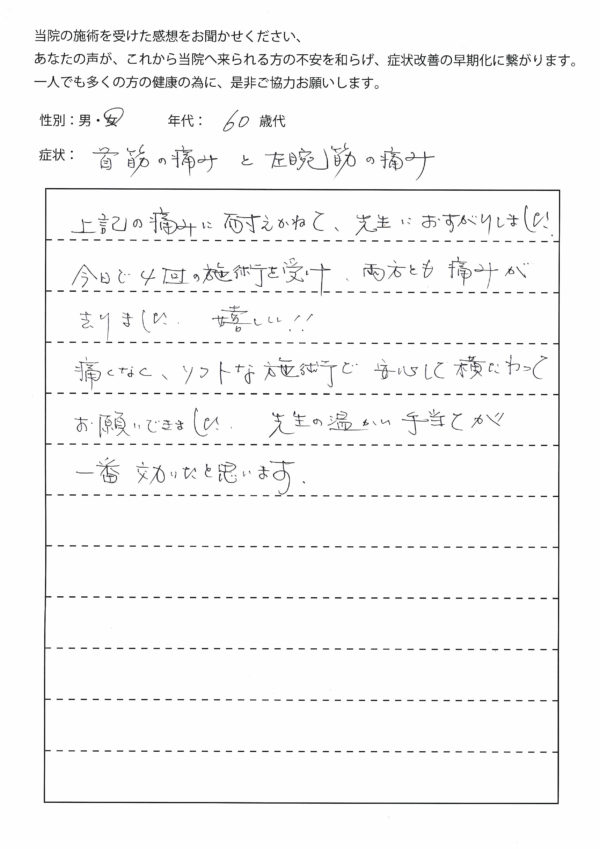 当院の施術を受けた感想をお聞かせください、
あなたの声が、これから当院へ来られる方の不安を和らげ、症状改善の早期化に繋がります。
一人でも多くの方の健康の為に、是非ご協力お願いします。
性別：男・女 年代： 60 歳代
症状： 首筋の痛みと左腕筋の痛み
上記の痛みに耐えかねて、先生におすがりしました。
今日で4回の施術を受け、両方とも痛みが
去りました。嬉しい!!
痛くなく、ソフトな施術で安心して横たわって
お願いできました。先生の温かい手当てが
一番効いたと思います。